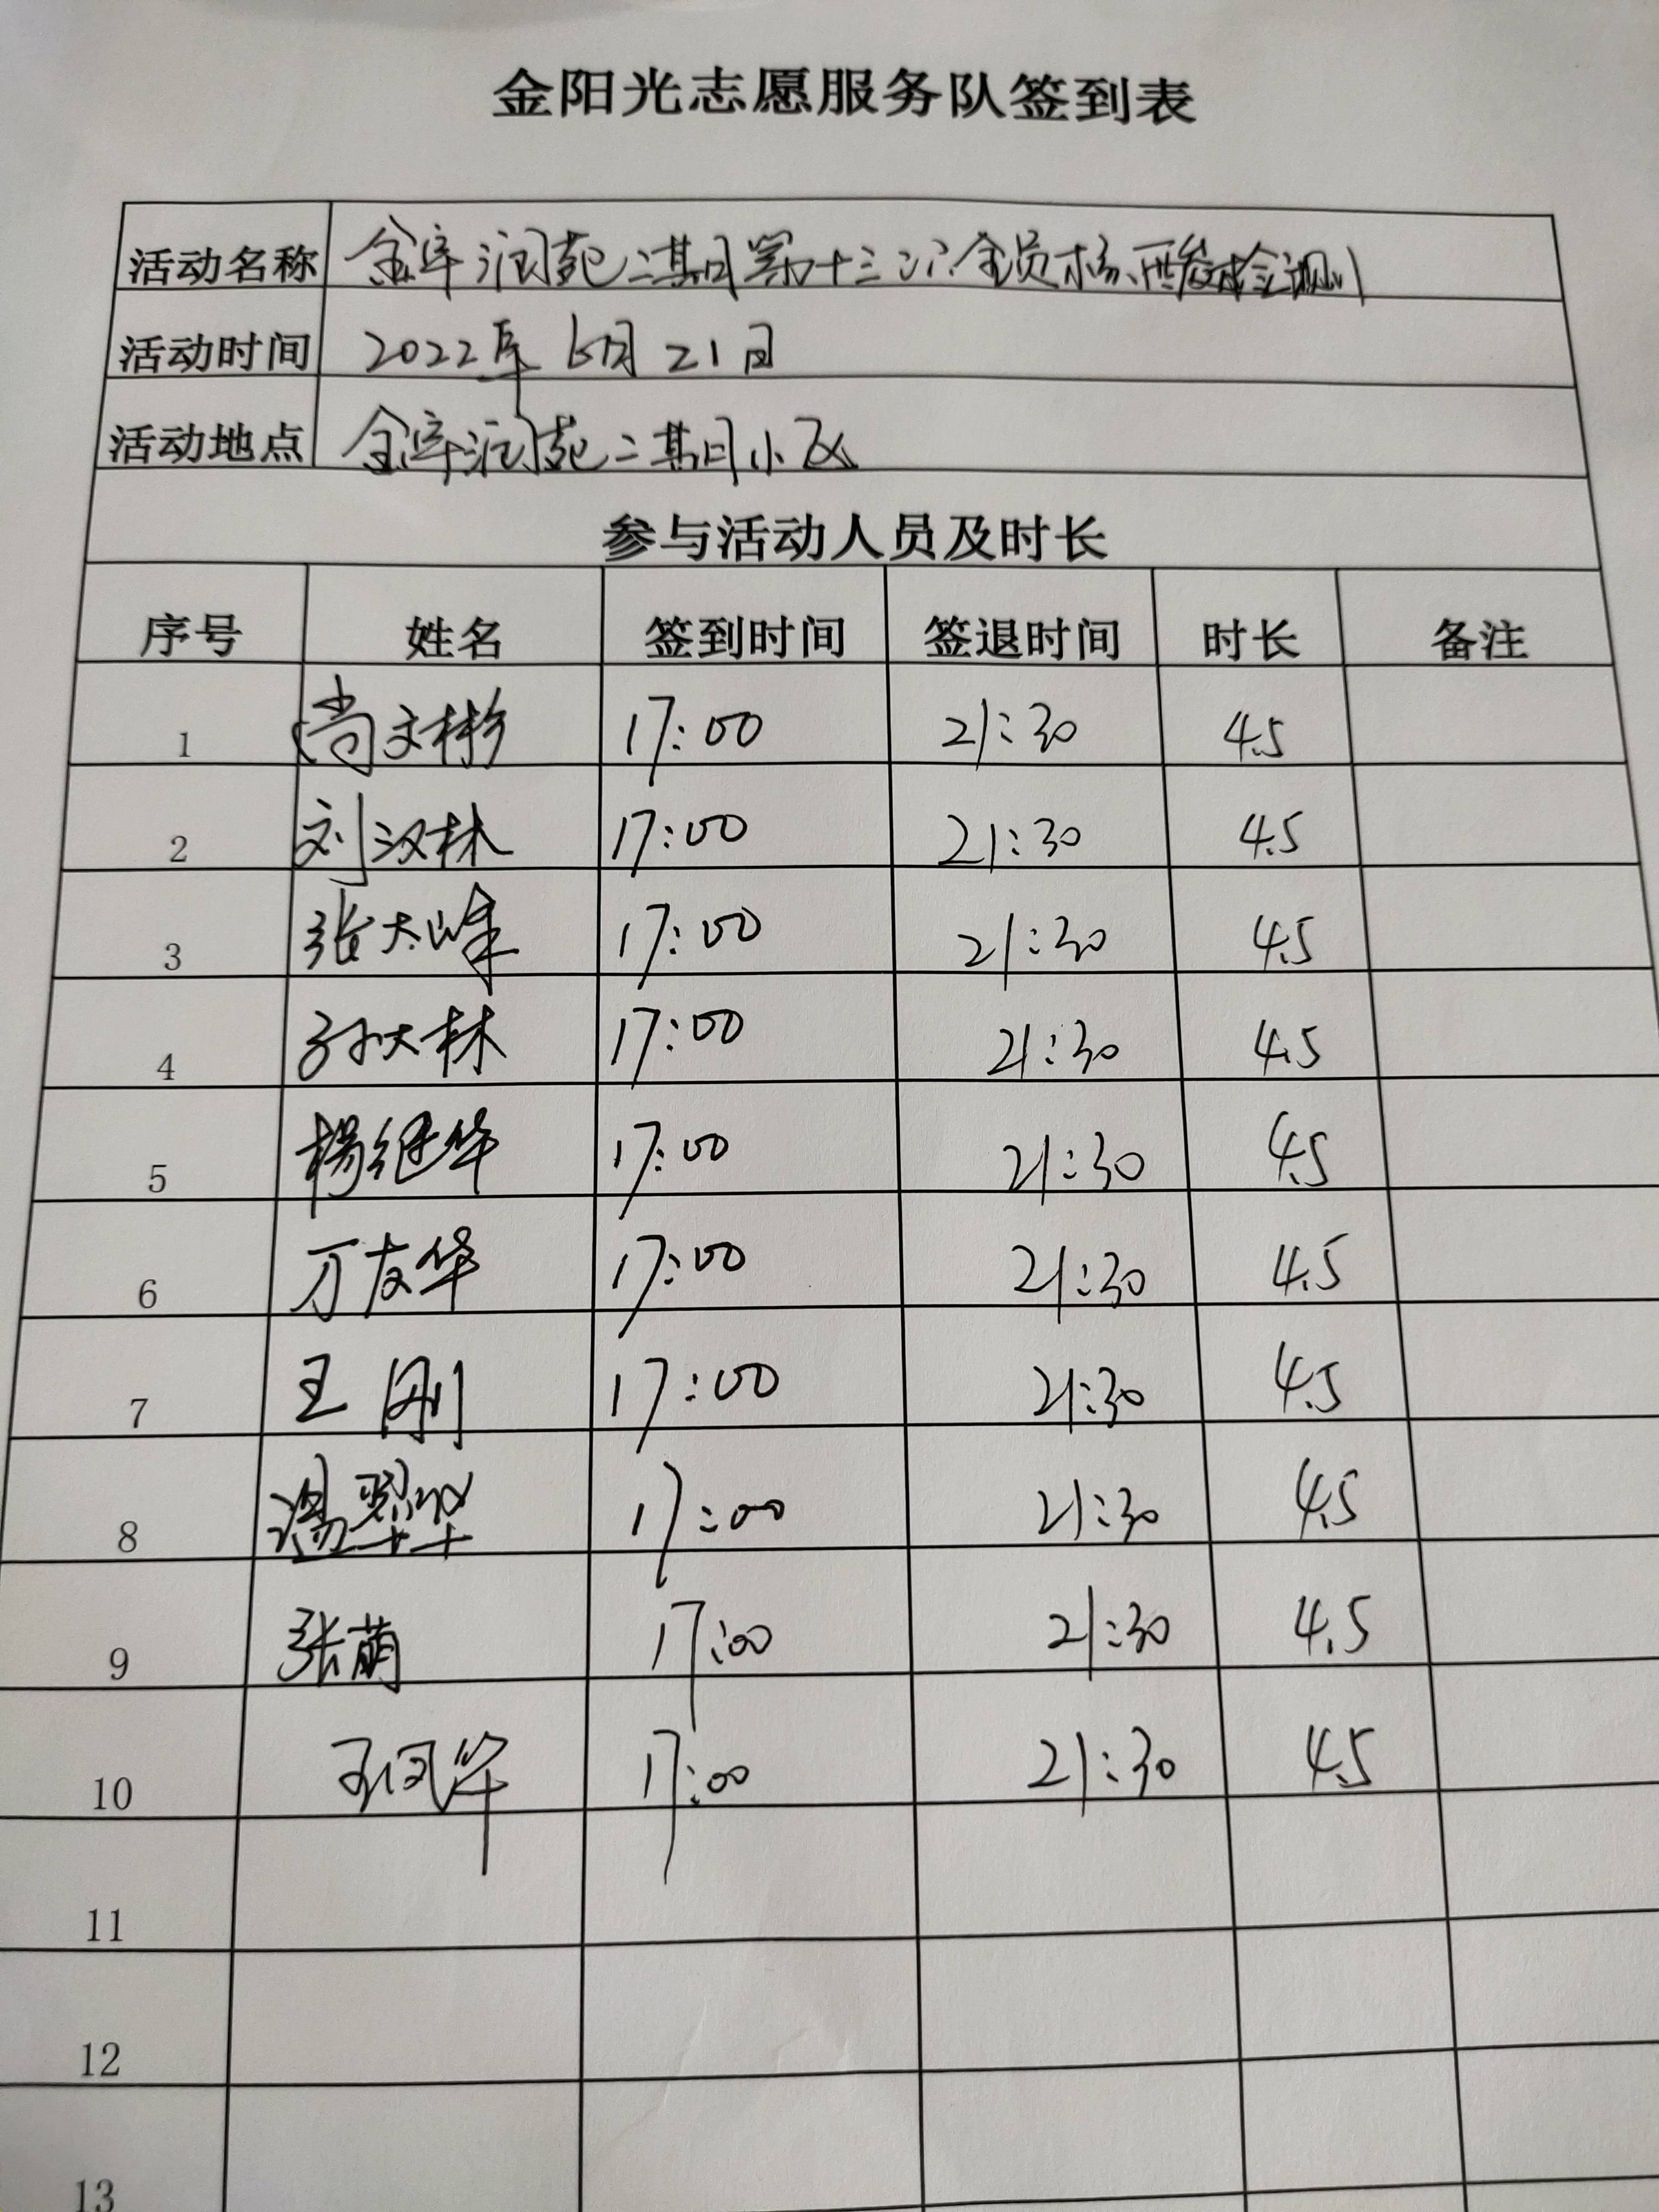 金阳光志愿服务队签到表
活动名称 金辉润苑二期第十三次全员核酸检测
活动时间 2022年6月21日
活动地点 金辉润苑二期小区
参与活动人员及时长
序号 姓名 签到时间 签退时间 时长 备注
1 尚文彬 17:00 21:30 4.5
2 刘汉林 17:00 21:30 4.5
3 张大峰 17:00 21:30 4.5
4 孙大林 17:00 21:30 4.5
5 杨继华 17:00 21:30 4.5
6 万友华 17:00 21:30 4.5
7 王刚 17:00 21:30 4.5
8 17:00 21:30 4.5
9 张萌 17:00 21:30 4.5
10 王凤华 17:00 21:30 4.5
11
12
13